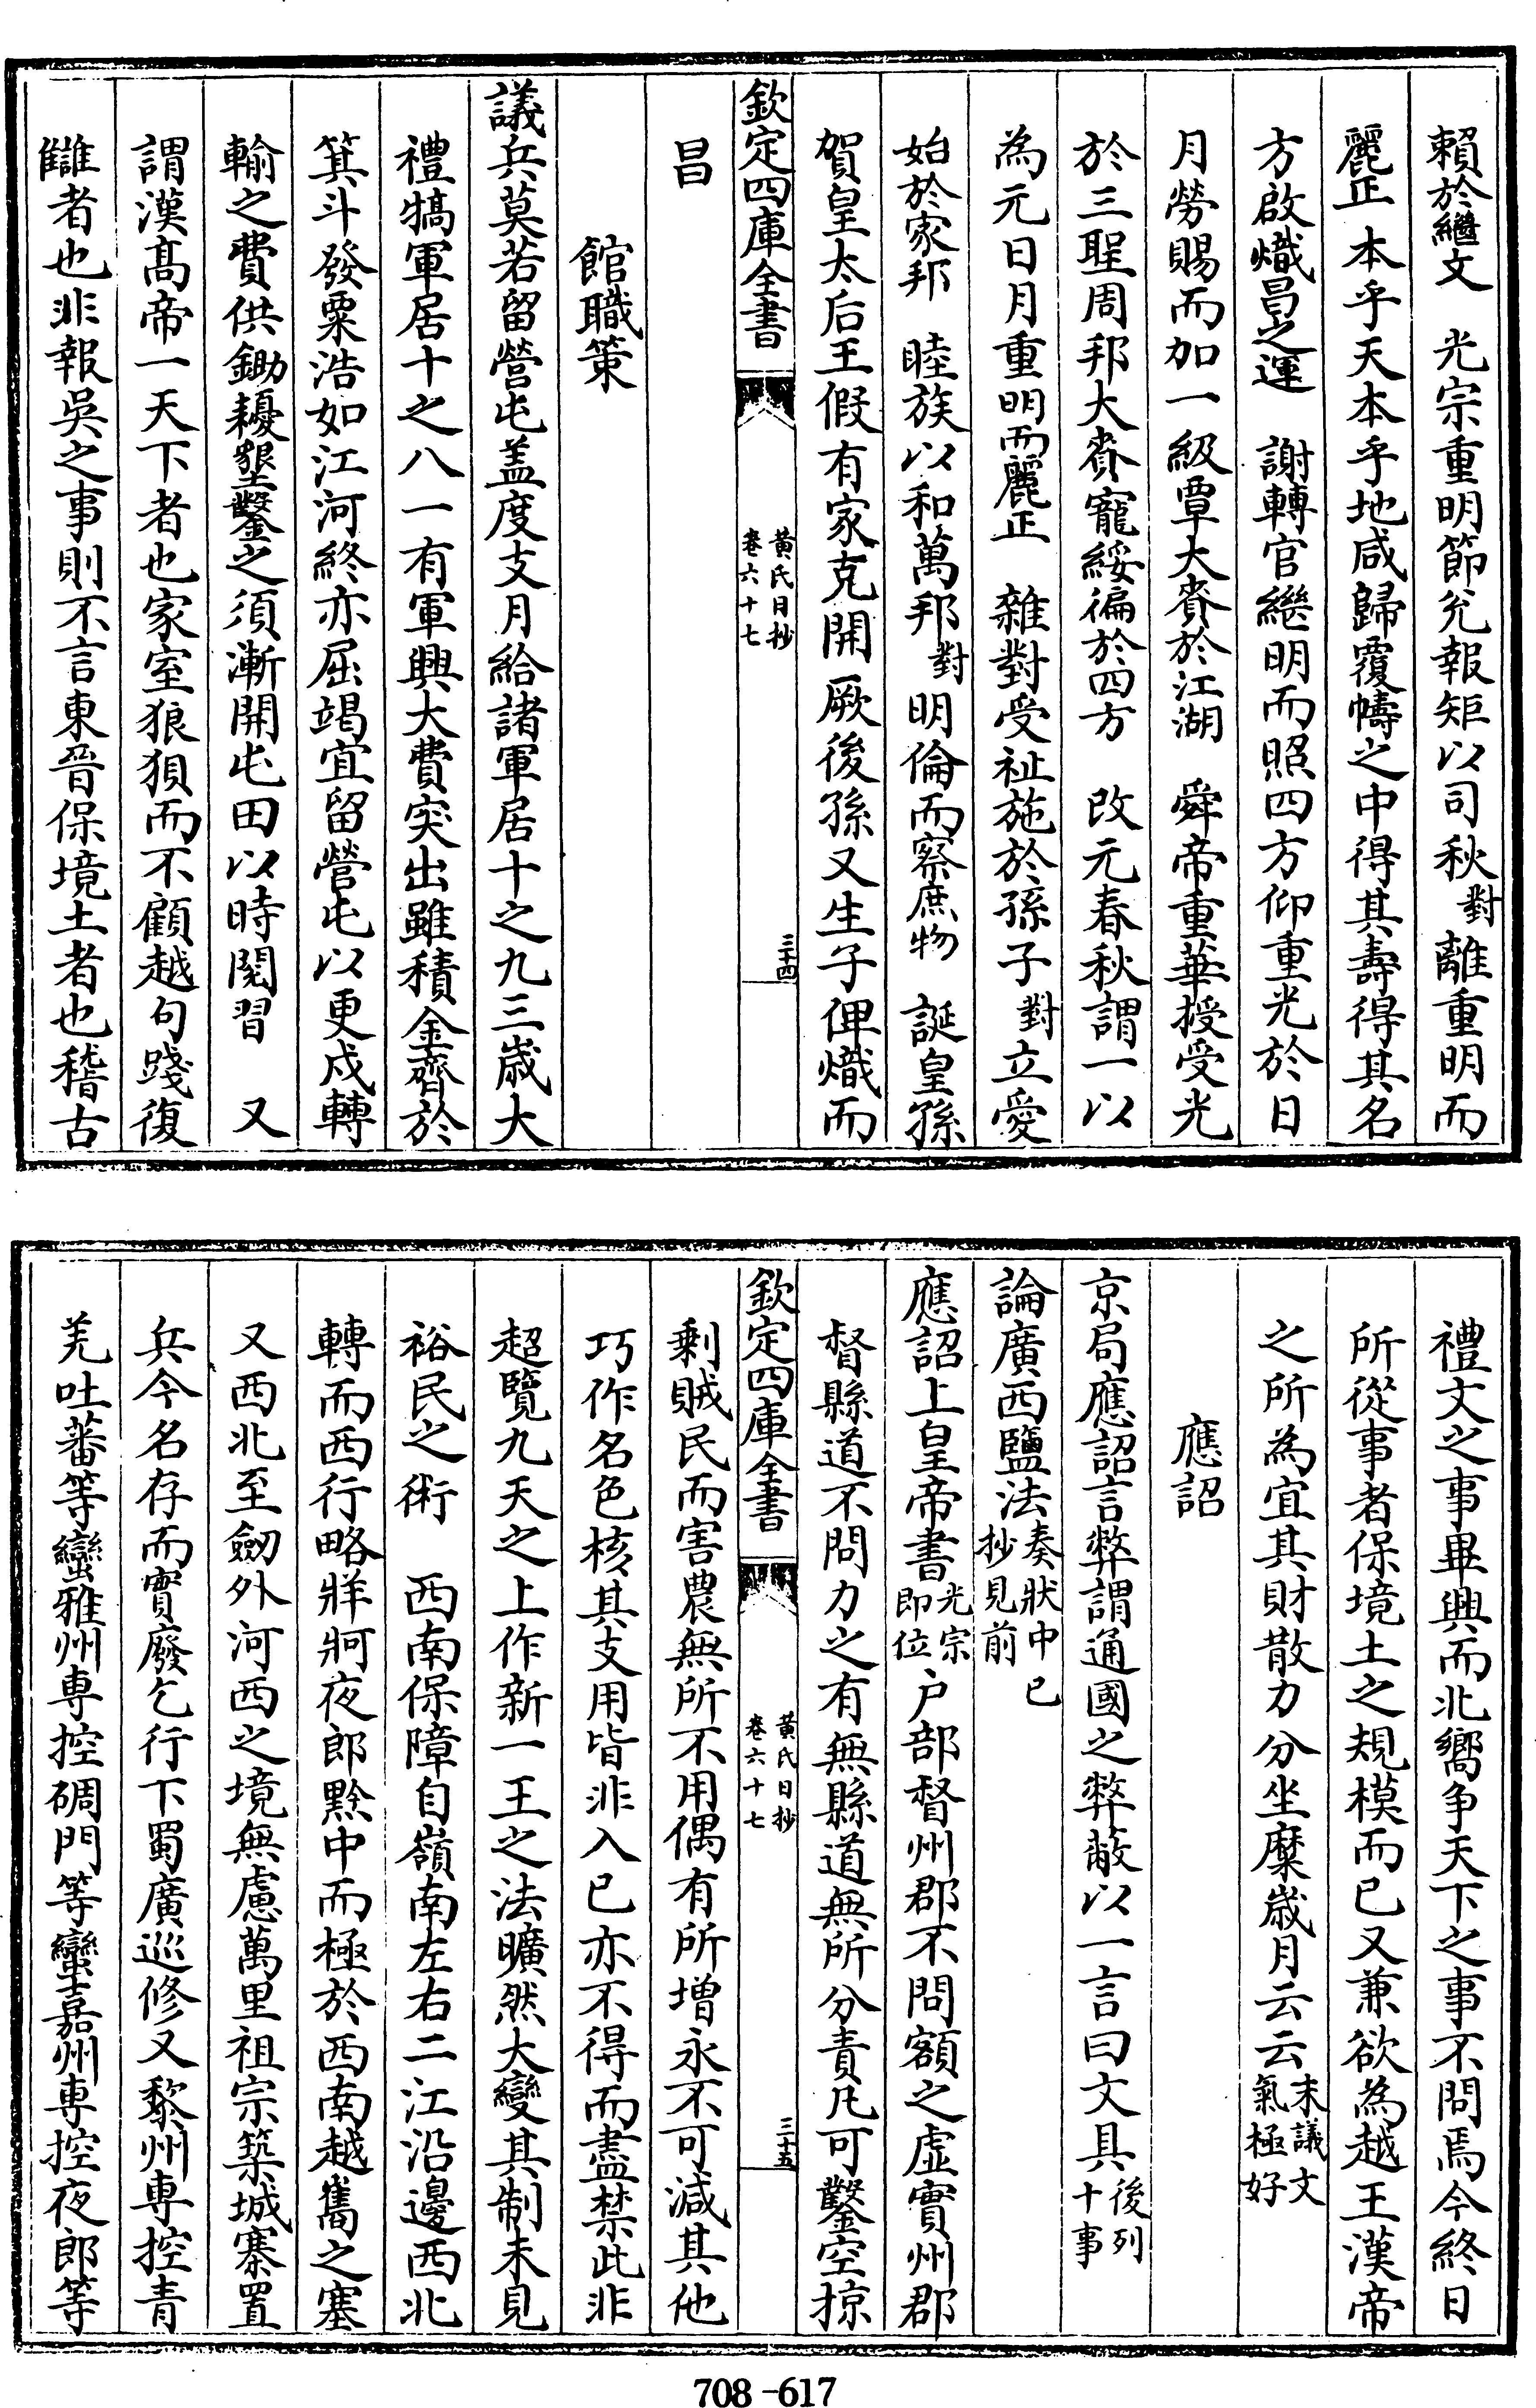 賴於繼文　光宗重明節兊報矩以司秋對離重明而
麗正本乎天本乎地咸歸覆幬之中得其壽得其名
方啟熾昌之運　謝轉官繼明而照四方仰重光於日
月勞賜而加一級覃大賚於江湖　舜帝重華授受光
於三聖周邦大賚寵綏徧於四方　改元春秋謂一以
為元日月重明而麗正　雜對受祉施於孫子對立愛
始於家邦　睦族以和萬邦對明倫而察庶物　誕皇孫
賀皇太后王假有家克開厥後孫又生子俾熾而
欽定四庫全書
黃氏日抄
卷六十七
三十四
昌
館職策
議兵莫若留營屯盖度支月給諸軍居十之九三歲大
禮犒軍居十之八一有軍興大費突出雖積金齊於
箕斗發粟浩如江河終亦屈竭宜留營屯以更戍轉
輸之費供鋤耰墾鑿之須漸開屯田以時閱習　又
謂漢髙帝一天下者也家室狼狽而不顧越句踐復
讎者也非報吳之事則不言東晉保境土者也稽古
禮文之事畢興而北嚮争天下之事不問焉今終日
所從事者保境土之規模而已又兼欲為越王漢帝
之所為宜其財散力分坐糜歲月云云末議文氣極好
應詔
京局應詔言弊謂通國之弊蔽以一言曰文具後列十事
論廣西鹽法奏狀中已抄見前
應詔上皇帝書光宗即位户部督州郡不問額之虚實州郡
督縣道不問力之有無縣道無所分責凡可鑿空掠
欽定四庫全書
黃氏日抄
卷六十七
三十五
剩賊民而害農無所不用偶有所增永不可減其他
巧作名色核其支用皆非入已亦不得而盡禁此非
超覽九天之上作新一王之法曠然大變其制未見
裕民之術　西南保障自嶺南左右二江沿邊西北
轉而西行略牂牁夜郎黔中而極於西南越巂之塞
又西北至劒外河西之境無慮萬里祖宗築城寨置
兵今名存而實廢乞行下蜀廣巡修又黎州專控青
羌吐蕃等蠻雅州専控碉門等蠻嘉州専控夜郎等
708-617